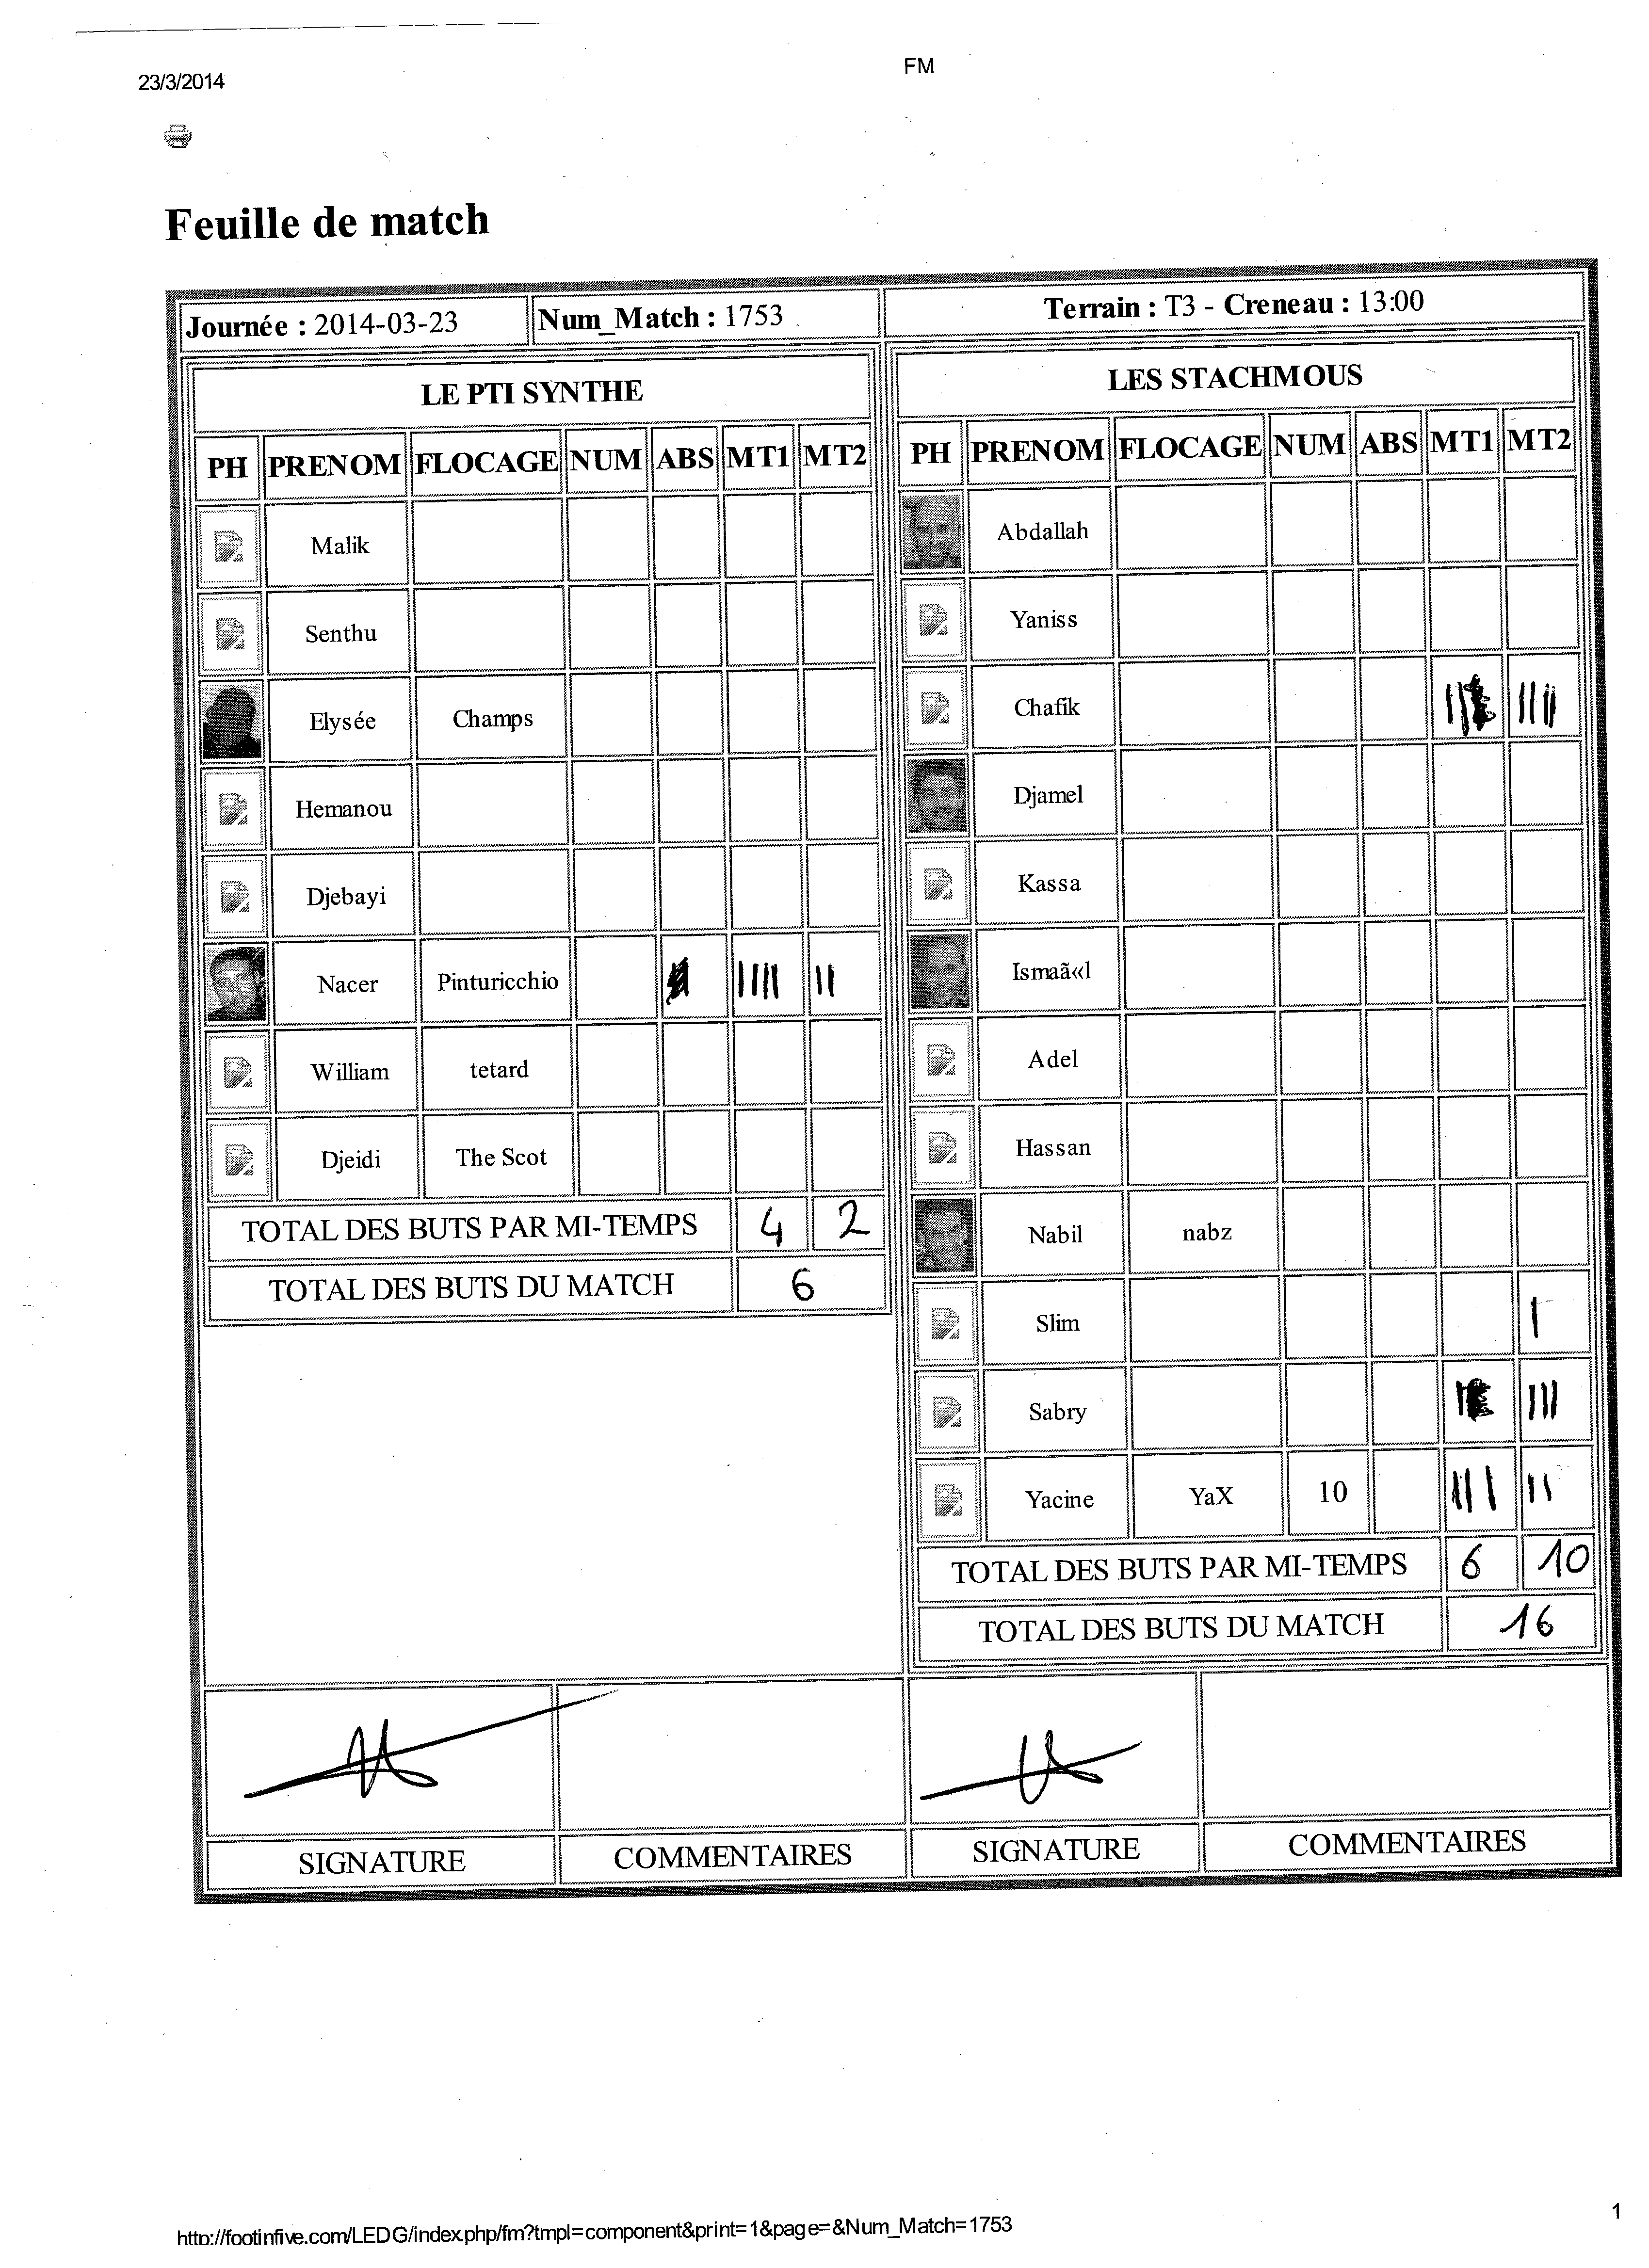 23/3/2014
FM
Feuille de match
Journée : 2014-03-23
Num_Match : 1753
Terrain : T3 - Creneau : 13:00
LE PTI SYNTHE
PH PRENOM FLOCAGE NUM ABS MT1 MT2
Malik
Senthu
Elysée Champs
Hemanou
Djebayi
Nacer Pinturicchio |||| ||
William tetard
Djeidi The Scot
TOTAL DES BUTS PAR MI-TEMPS 4 2
TOTAL DES BUTS DU MATCH 6
LES STACHMOUS
PH PRENOM FLOCAGE NUM ABS MT1 MT2
Abdallah
Yaniss
Chafik || ||||
Djamel
Kassa
Ismaã«l
Adel
Hassan
Nabil nabz
Slim |
Sabry | |||
Yacine YaX 10 ||| ||
TOTAL DES BUTS PAR MI-TEMPS 6 10
TOTAL DES BUTS DU MATCH 16
SIGNATURE
COMMENTAIRES
SIGNATURE
COMMENTAIRES
http://footinfive.com/LEDG/index.php/fm?tmpl=component&print=1&page=&Num_Match=1753
1